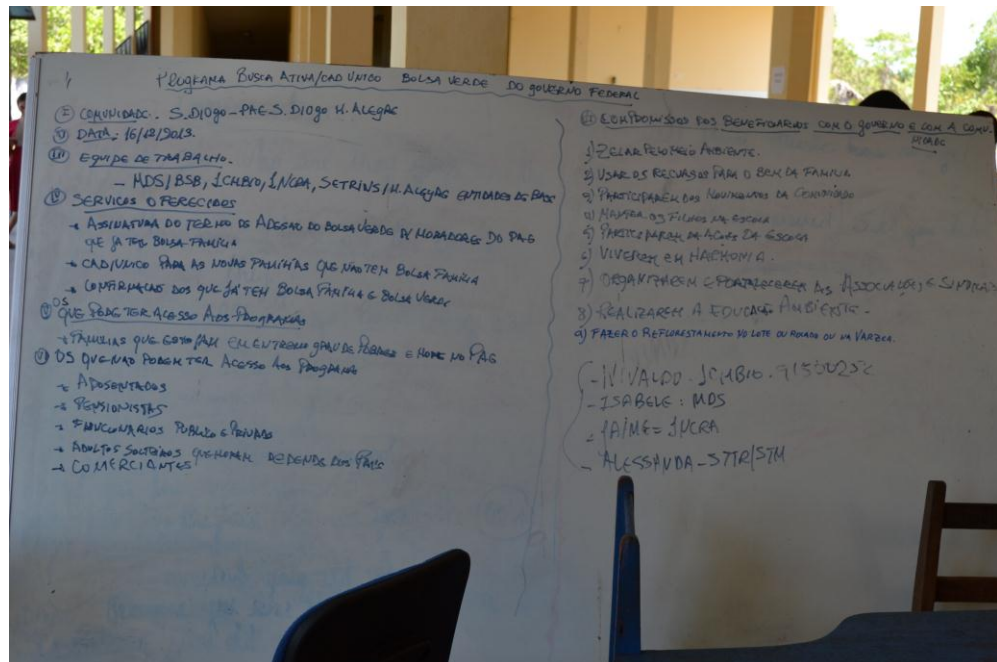 PROGRAMA BUSCA ATIVA/CAD UNICO BOLSA VERDE DO GOVERNO FEDERAL
I COMUNIDADE: S. DIOGO - PAE S. DIOGO M. ALEGRE
II DATA: 16/12/2013.
III EQUIPE DE TRABALHO.
- MDS/BSB, ICMBIO, INCRA, SETRINS/M. ALEGRE ENTIDADES DE BASE
IV SERVIÇOS OFERECIDOS
→ ASSINATURA DO TERMO DE ADESÃO DO BOLSA VERDE P/ MORADORES DO PAE
QUE JA TEM BOLSA FAMÍLIA
→ CAD/UNICO PARA AS NOVAS FAMÍLIAS QUE NÃO TEM BOLSA FAMÍLIA
→ CONFIRMAÇÃO DOS QUE JÁ TEM BOLSA FAMÍLIA E BOLSA VERDE
V OS QUE PODE TER ACESSO AOS PROGRAMAS
→ FAMÍLIAS QUE ESTEJAM EM EXTREMO GRAU DE POBREZA E MORE NO PAE
VI OS QUE NÃO PODEM TER ACESSO AOS PROGRAMA
→ APOSENTADOS
→ PENSIONISTAS
→ FUNCIONÁRIOS PUBLICO E PRIVADO
→ ADULTOS SOLTEIROS QUE MORAM DEPENDE DOS PAIS
→ COMERCIANTES
COMPROMISSOS DOS BENEFICIARIOS COM O GOVERNO E COM A COMU-
NIDADE
1) ZELAR PELO MEIO AMBIENTE.
2) USAR OS RECURSOS PARA O BEM DA FAMÍLIA
3) PARTICIPAREM DOS MOVIMENTOS DA COMUNIDADE
4) MANTER OS FILHOS NA ESCOLA
5) PARTICIPAREM DA AÇÕES DA ESCOLA
6) VIVEREM EM HARMONIA.
7) ORGANIZAREM E FORTALECEREM AS ASSOCIAÇÕES E SINDICATOS
8) REALIZAREM A EDUCAÇÃO AMBIENTE.
9) FAZER O REFLORESTAMENTO NO LOTE OU ROÇADO OU NA VARZEA.
- NIVALDO. ICMBIO.
- ISABELE: MDS
- JAIME = INCRA
- ALESSANDA - STTR/STM